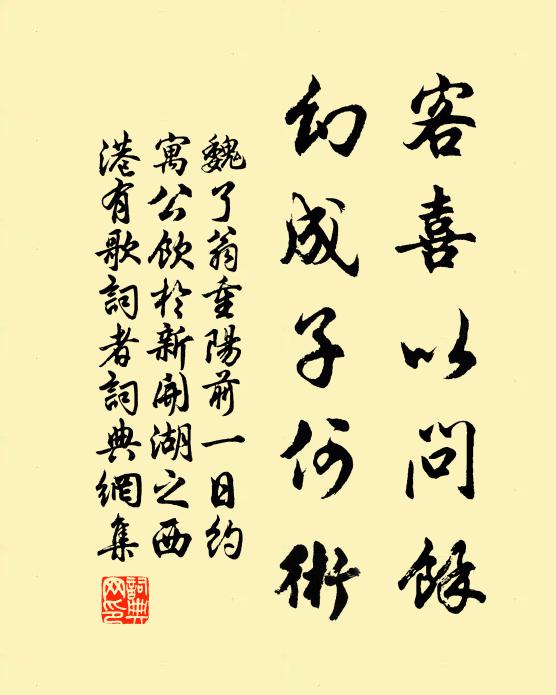 客喜以問餘
幻成子何術
魏了翁重陽前一日約
寓公飲於新開湖之西
港有歌詞者詞典網集
詞典网印